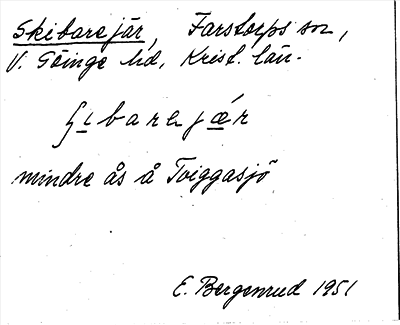 Skibarejär, Farstorps sn,
V. Göinge hd, Krist. län.
ʃi̲barejǽ̲r
mindre ås å Tviggasjö
E. Bergenrud 1951